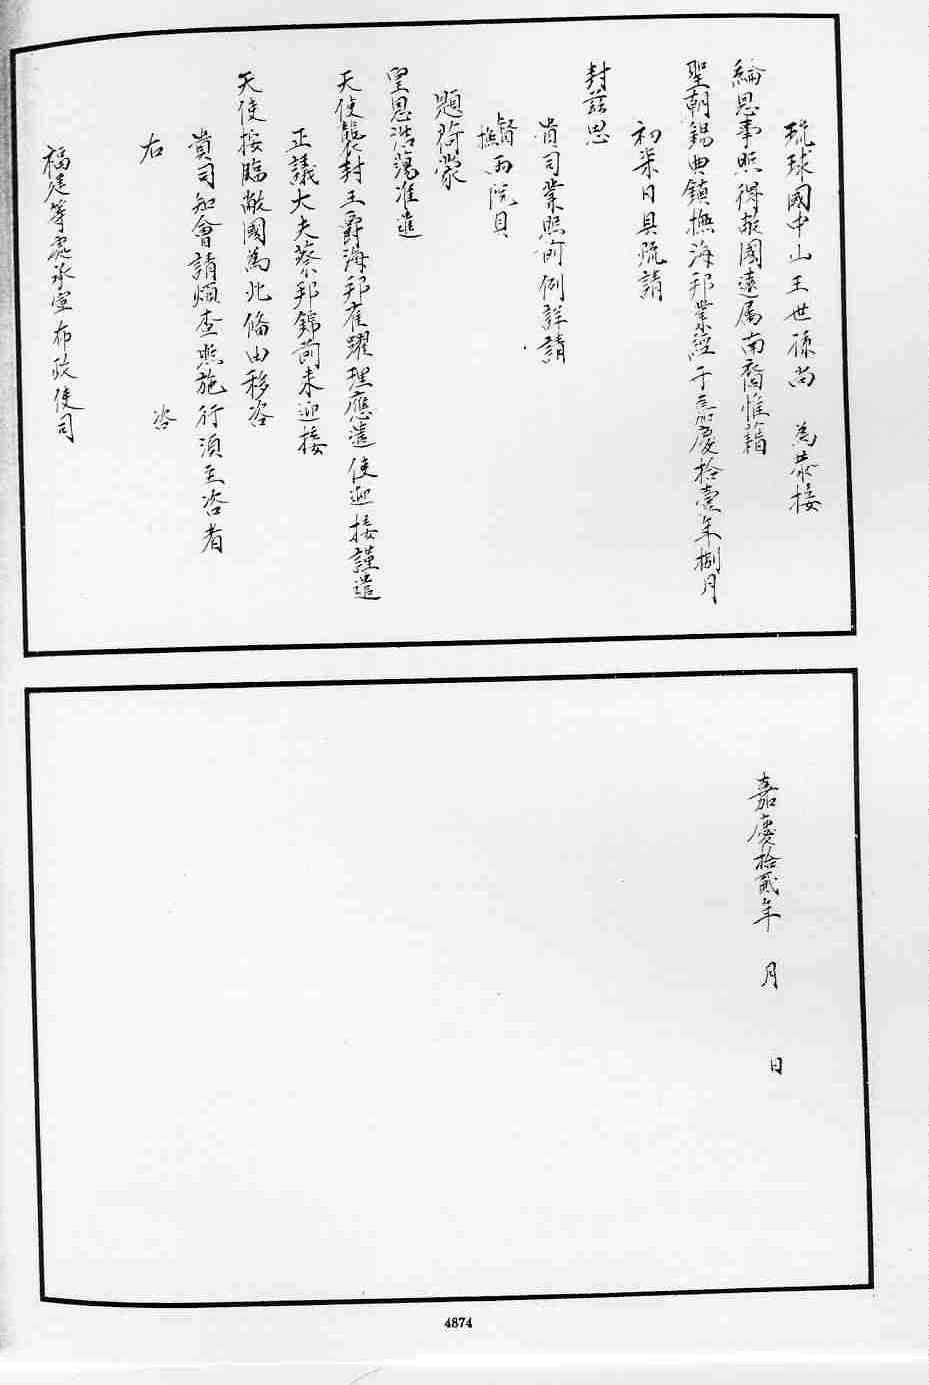 琉球國中山王世孫尚 為恭接
綸恩事照得敝國遠属南裔惟籍
聖朝錫典鎮撫海邦業經于嘉慶拾壹年捌月
初柒日具疏請
封茲思
貴司業照前例詳請
督撫兩院具
題荷蒙
皇恩浩蕩准遣
天使襲封王爵海邦雀躍理應遣使迎接謹遣
正議大夫蔡邦錦前来迎接
天使按臨敝國為此備由移咨
貴司知會請煩查照施行須至咨者
右 咨
福建等處承宣布政使司
嘉慶拾貳年 月 日
4874